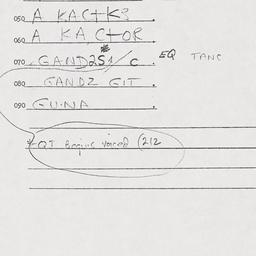 050 A KACTK
060 A KACTOR
070 GAND251/C EQ TANC
080 GANDZ GIT
090 GUNA
QJ Begins voiced (212